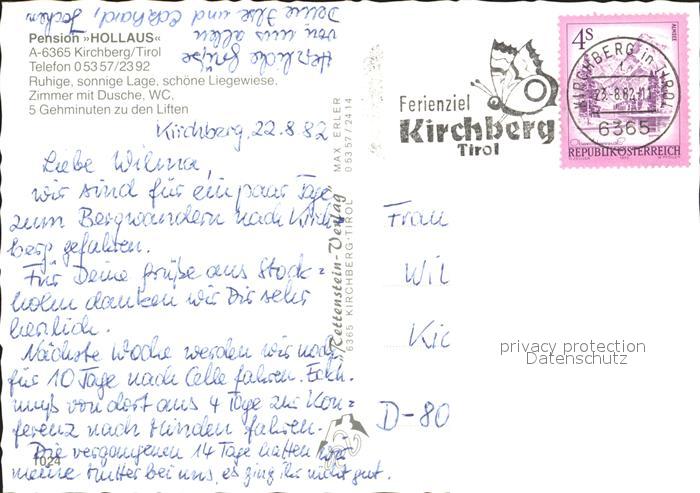 Pension »HOLLAUS«
A-6365 Kirchberg/Tirol
Telefon 0 53 57/23 92
Ruhige, sonnige Lage, schöne Liegewiese.
Zimmer mit Dusche, WC.
5 Gehminuten zu den Liften
Kirchberg, 22.8.82
Liebe Wilma,
wir sind für ein paar Tage
zum Bergwandern nach Kirch
berg gefahren.
Für Deine Grüße aus Stock=
holm danken wir Dir sehr
herzlich.
Nächste Woche werden wir noch
für 10 Tage nach Celle fahren. Eckh.
muß von dort aus 4 Tage zur Kon=
ferenz nach Minden fahren.
Die vergangenen 14 Tage hatten wir
meine Mutter bei uns, es ging ihr nicht gut.
Herzliche Grüße
von uns allen
Deine Ilse und Eckhard, Jochen
1024
MAX ERLER
05357/2414
"Rettenstein-Verlag
6365 KIRCHBERG-TIROL
Ferienziel
Kirchberg
Tirol
4S
ALMSEE
REPUBLIK ÖSTERREICH
KIRCHBERG in TIROL
23.-8.82
6365
Frau
Wil
Kic
D-80
privacy protection
Datenschutz